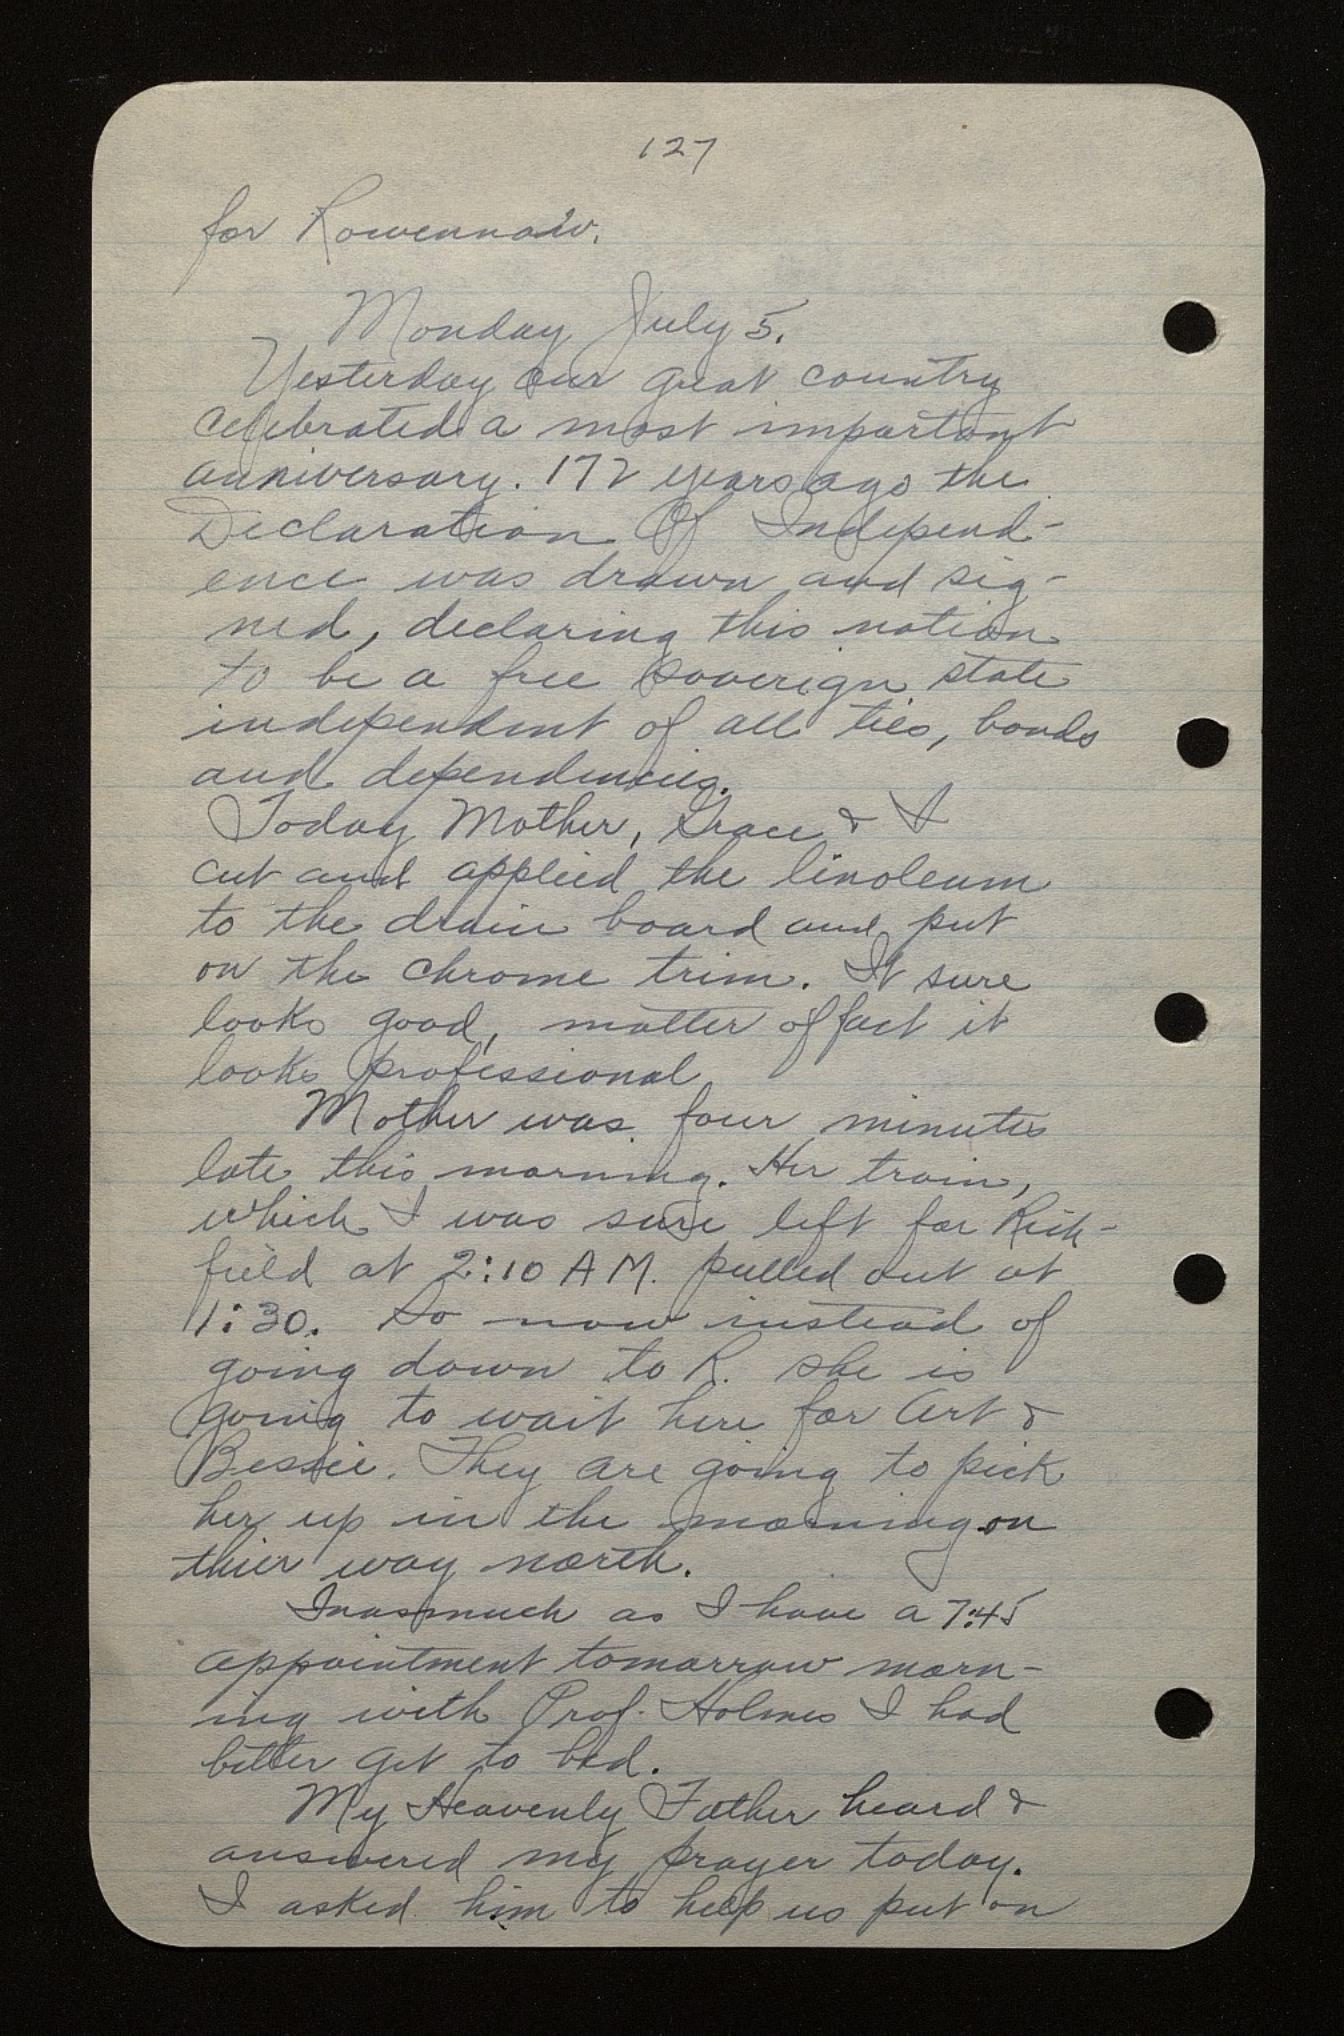 127
for Rowenna W.
Monday July 5.
Yesterday our great country
celebrated a most important
anniversary. 172 years ago the
Declaration Of Independ-
ence was drawn and sig-
ned, declaring this nation
to be a free soverign state
independent of all ties, bonds
and dependencies.
Today Mother, Grace & I
cut and applied the linoleum
to the drain board and put
on the chrome trim. It sure
looks good, matter of fact it
looks professional
Mother was four minutes
late this morning. Her train,
which I was sure left for Rich-
field at 2:10 A M. pulled out at
1:30. So now instead of
going down to R. she is
going to wait here for Art &
Bessie. They are going to pick
her up in the morning on
thier way north.
Inasmuch as I have a 7:45
appointment tomorrow morn-
ing with Prof. Holmes I had
better get to bed.
My Heavenly Father heard &
answered my prayer today.
I asked him to help us put on